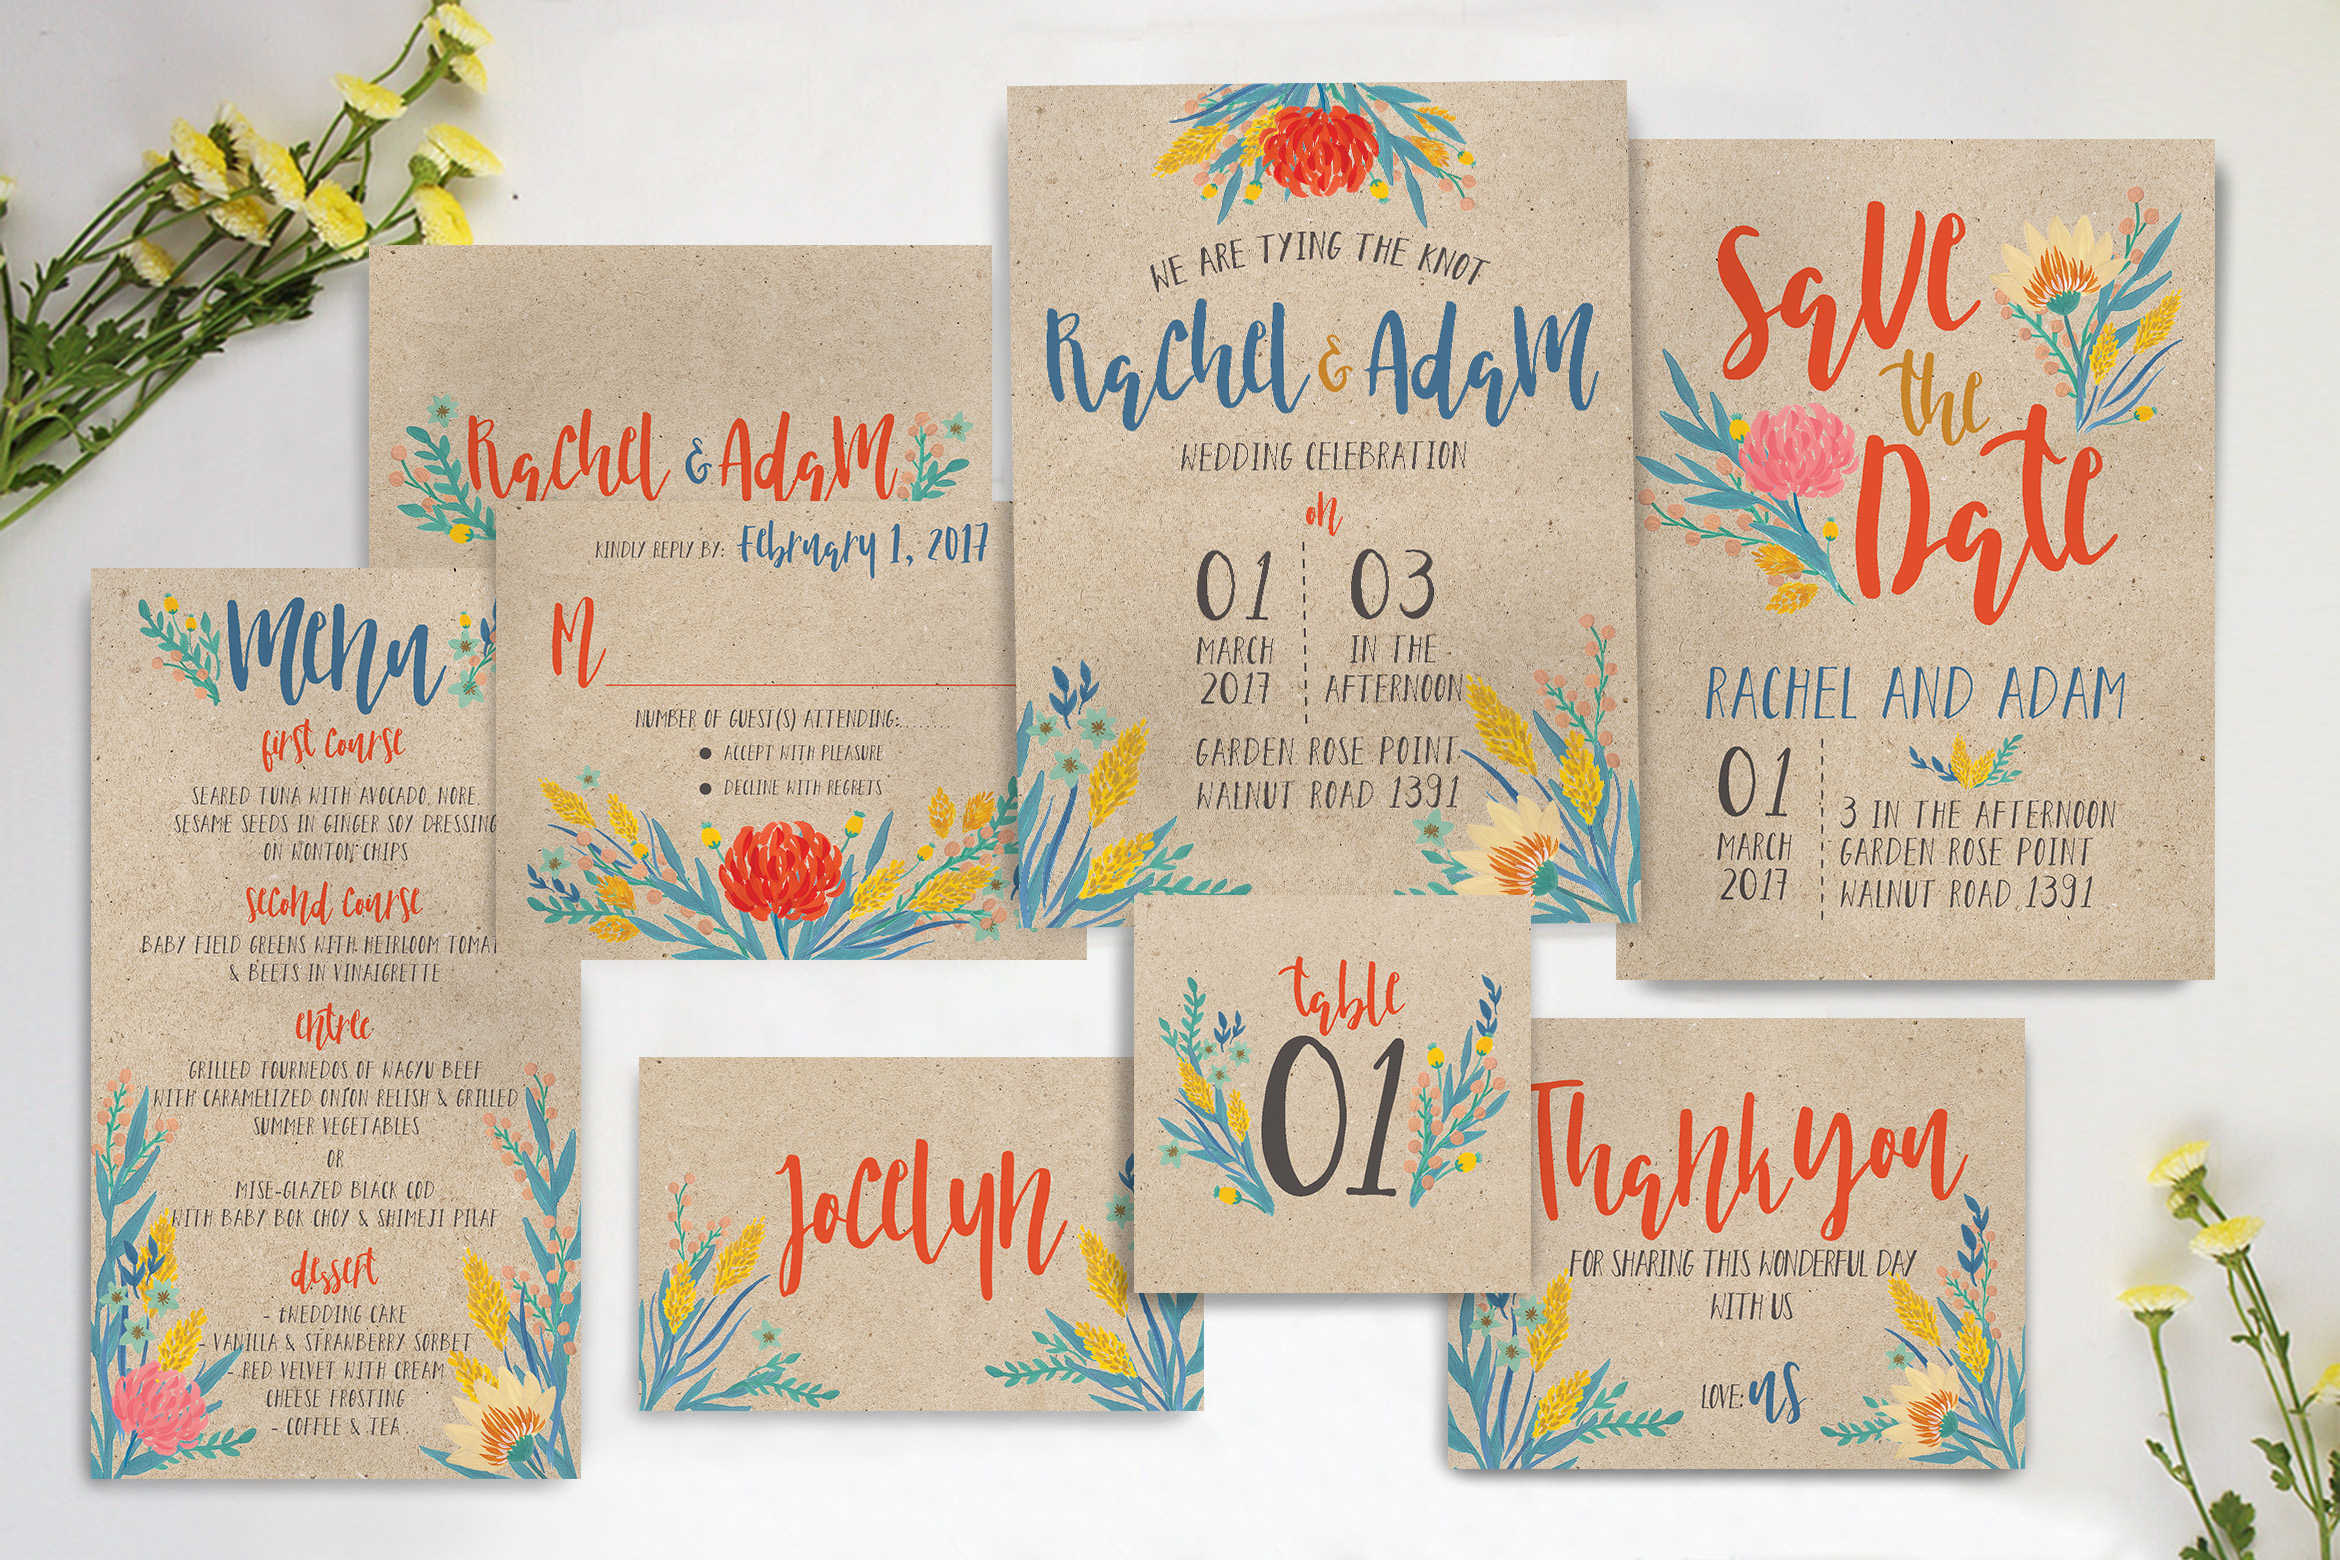 Rachel & Adam
KINDLY REPLY BY: February 1, 2017
M
NUMBER OF GUEST(S) ATTENDING:........
● ACCEPT WITH PLEASURE
● DECLINE WITH REGRETS
Menu
first course
SEARED TUNA WITH AVOCADO, NORE,
SESAME SEEDS IN GINGER SOY DRESSING
ON WONTON CHIPS
second course
BABY FIELD GREENS WITH HEIRLOOM TOMAT
& BEETS IN VINAIGRETTE
entree
GRILLED TOURNEDOS OF WAGYU BEEF
WITH CARAMELIZED ONION RELISH & GRILLED
SUMMER VEGETABLES
OR
MISE-GLAZED BLACK COD
WITH BABY BOK CHOY & SHIMEJI PILAF
dessert
- tWEDDING CAKE
- VANILLA & STRAWBERRY SORBET
- RED VELVET WITH CREAM
CHEESE FROSTING
- COFFEE & TEA
WE ARE TYING THE KNOT
Rachel & Adam
WEDDING CELEBRATION
on
01
MARCH
2017
03
IN THE
AFTERNOON
GARDEN ROSE POINT
WALNUT ROAD 1391
Save
the
Date
RACHEL AND ADAM
01
MARCH
2017
3 IN THE AFTERNOON
GARDEN ROSE POINT
WALNUT ROAD 1391
Jocelyn
table
01
Thank you
FOR SHARING THIS WONDERFUL DAY
WITH US
LOVE: us